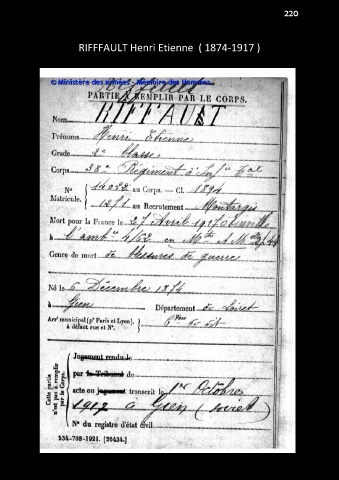 220
RIFFFAULT Henri Etienne ( 1874-1917 )
© Ministère des armées - Mémoire des Hommes
PARTIE À REMPLIR PAR LE CORPS.
Nom RIFFAULT
Prénoms Henri Etienne
Grade 2e classe
Corps 38e Régiment d'Infie
N° 14022 au Corps. — Cl. 1894
Matricule. 1271 au Recrutement Montargis
Mort pour la France le 27 Avril 1917
à l'ambce 4/62 en
Genre de mort de blessures de guerre
Né le 6 Décembre 1874
à Gien Département du Loiret
Arrt municipal (pr Paris et Lyon), à défaut rue et N°.
Cette partie n'est pas à remplir par le Corps.
Jugement rendu le
par le Tribunal de
acte ou jugement transcrit le 1er Octobre
1917 à Gien (Loiret)
N° du registre d'état civil
534-708-1921. [26434.]